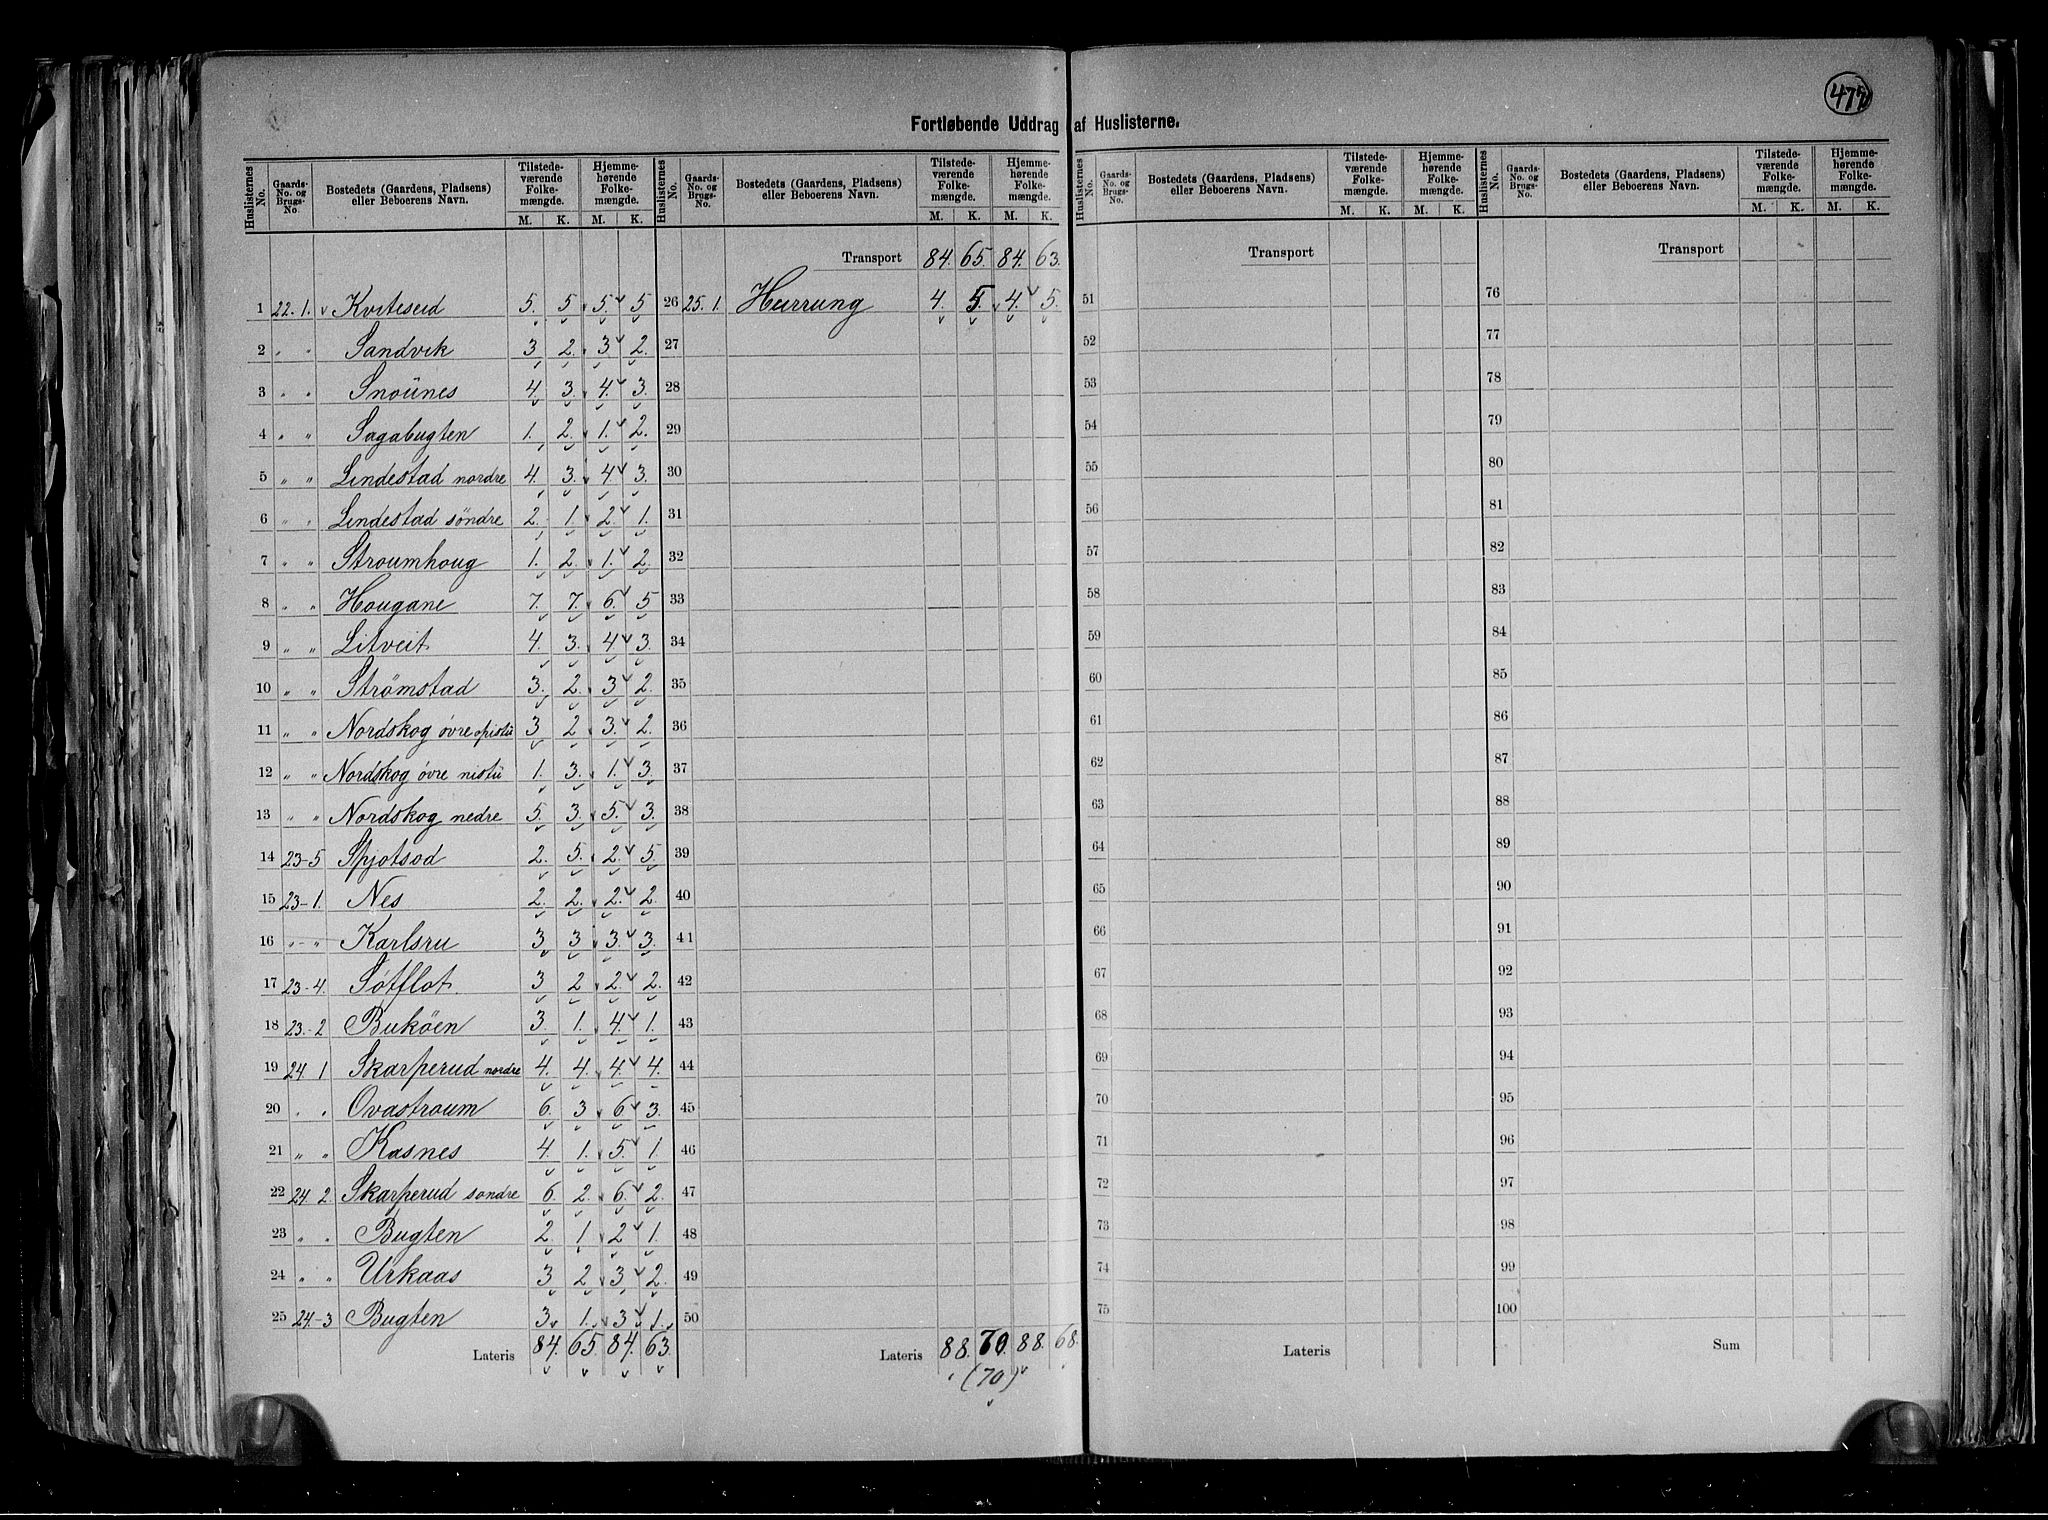 477
Fortløbende Uddrag af Huslisterne.
Huslisternes No. Gaards-No. og Brugs-No. Bostedets (Gaardens, Pladsens) eller Beboerens Navn. Tilstedeværende Folkemængde. M. K. Hjemmehørende Folkemængde. M. K.
1 22. 1. Kviteseid 5. 5 5 5
2 " " Sandvik 3 2. 3 2.
3 " " Snoünes 4 3. 4. 3.
4 " " Sagabugten 1. 2. 1. 2.
5 " " Lindestad nordre 4. 3. 4 3.
6 " " Lindestad söndre 2. 1. 2. 1.
7 " " Stroumhoug 1. 2. 1. 2.
8 " " Hougane 7. 7. 6. 5
9 " " Litveit 4. 3. 4 3.
10 " " Strømstad 3. 2. 3 2.
11 " " Nordskog óvre opistü 3 2 3. 2.
12 " " Nordskog óvre nistü 1. 3. 1. 3.
13 " " Nordskog nedre 5. 3. 5. 3.
14 23-5 Spjotsod 2. 5. 2. 5.
15 23-1. Nes 2. 2. 2. 2.
16 " " Karlsru 3 3 3. 3.
17 23-4. Søtflot 3 2 2. 2.
18 23.-2 Buköen 3. 1. 4. 1.
19 24 1 Skarperud nordre 4. 4. 4. 4.
20 " " Ovastroum 6. 3 6 3.
21 " " Kasnes 4. 1. 5. 1.
22 24. 2. Skarperud söndre 6. 2. 6. 2.
23 " " Bugten 2. 1 2 1.
24 " " Urkaas 3 2 3 2.
25 24.-3 Bugten 3. 1. 3 1.
Lateris 84. 65. 84. 63.
Huslisternes No. Gaards-No. og Brugs-No. Bostedets (Gaardens, Pladsens) eller Beboerens Navn. Tilstedeværende Folkemængde. M. K. Hjemmehørende Folkemængde. M. K.
Transport 84. 65. 84. 63.
26 25. 1. Hurrung 4. 5. 4. 5.
27
28
29
30
31
32
33
34
35
36
37
38
39
40
41
42
43
44
45
46
47
48
49
50
Lateris 88. 70. 88. 68.
(70)
Huslisternes No. Gaards-No. og Brugs-No. Bostedets (Gaardens, Pladsens) eller Beboerens Navn. Tilstedeværende Folkemængde. M. K. Hjemmehørende Folkemængde. M. K.
Transport
51
52
53
54
55
56
57
58
59
60
61
62
63
64
65
66
67
68
69
70
71
72
73
74
75
Lateris
Huslisternes No. Gaards-No. og Brugs-No. Bostedets (Gaardens, Pladsens) eller Beboerens Navn. Tilstedeværende Folkemængde. M. K. Hjemmehørende Folkemængde. M. K.
Transport
76
77
78
79
80
81
82
83
84
85
86
87
88
89
90
91
92
93
94
95
96
97
98
99
100
Sum